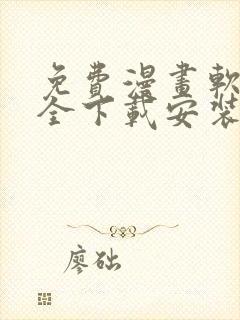 免費漫畫軟
全下載安裝
廖础